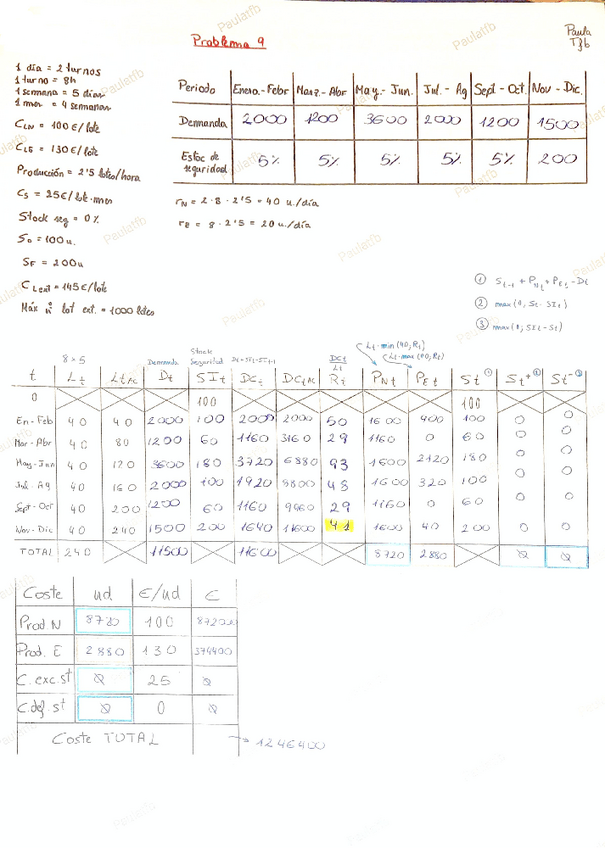 Problema 9
Paula
T3b
1 día = 2 turnos
1 turno = 8h
1 semana = 5 días
1 mes = 4 semanas
CLN = 100€/lote
CLE = 130€/lote
Producción = 2'5 lotes/hora
CS = 25€/lot·mes
Stock seg = 0%
S0 = 100u.
SF = 200u
CLext = 145€/lote
Máx nº lot ext. = 1000 lotes
Periodo Enero-Febr Marz-Abr May.-Jun. Jul.-Ag Sept-Oct. Nov-Dic.
Demanda 2000 1200 3600 2000 1200 1500
Estoc de seguridad 5% 5% 5% 5% 5% 200
rN = 2·8·2'5 = 40 u./día
rE = 8·2'5 = 20 u./día
① St-1 + PNt + PEt - Dt
② max(0, St-SIt)
③ max(0, SIt-St)
Lt·min(40,Rt)
Lt·max(40,Rt)
8x5 Demanda Stock Seguridad Dt+SIt-SIt-1 DCt/Lt
t Lt LtAc Dt SIt DCt DCtAc Rt PNt PEt St① St+② St-③
0 100 100
En-Feb 40 40 2000 100 2000 2000 50 1600 400 100 0 0
Mar-Abr 40 80 1200 60 1160 3160 29 1160 0 60 0 0
May-Jun 40 120 3600 180 3720 6880 93 1600 2120 180 0 0
Jul-Ag 40 160 2000 100 1920 8800 48 1600 320 100 0 0
Sept-Oct 40 200 1200 60 1160 9960 29 1160 0 60 0 0
Nov-Dic 40 240 1500 200 1640 11600 41 1600 40 200 0 0
TOTAL 240 11500 11600 8720 2880 0 0
Coste ud €/ud €
Prod. N 8720 100 872000
Prod. E 2880 130 374400
C. exc. st 0 25 0
C. def. st 0 0 0
Coste TOTAL → 1246400